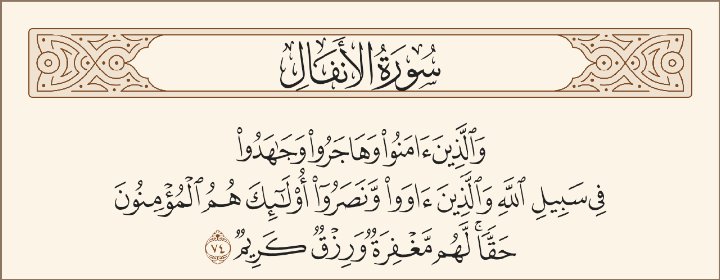 سُورَةُ الأَنفَالِ
وَٱلَّذِينَ ءَامَنُوا۟ وَهَاجَرُوا۟ وَجَٰهَدُوا۟
فِى سَبِيلِ ٱللَّهِ وَٱلَّذِينَ ءَاوَوا۟ وَّنَصَرُوٓا۟ أُو۟لَٰٓئِكَ هُمُ ٱلْمُؤْمِنُونَ
حَقًّا ۚ لَّهُم مَّغْفِرَةٌ وَرِزْقٌ كَرِيمٌ ٧٤